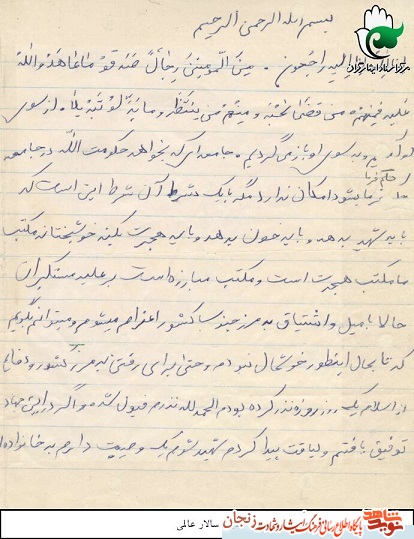 بسم الله الرحمن الرحیم
انا لله و انا الیه راجعون. من المومنین رجال صدقوا ما عاهدوا الله
علیه فمنهم من قضی نحبه و منهم من ینتظر و ما بدلوا تبدیلا. از سوی
او آمدیم و به سوی او باز می‌گردیم. جامعه‌ای که بخواهد حکومت الله در جامعه
حکم‌فرما
بشود امکان ندارد مگر با یک شرط آن شرط این است که
باید شهید بدهد و باید خون بدهد و باید هجرت بکند خوشبختانه مکتب
ما مکتب هجرت است و مکتب مبارزه است بر علیه مستکبران
حالا با میل و اشتیاق به مرز کشور اعزام میشوم و میتوانم بگویم
که تا بحال اینطور خوشحال نبودم و حتی برای رفتن به مرز کشور و دفاع
از اسلام یک روز روزه نذر کرده بودم الحمدلله نذرم قبول شد و اگر در این جهاد
توفیق یافتم و لیاقت پیدا کردم شهید شوم یک وصیت دارم به خانواده‌ام
نوید شاهد
پایگاه اطلاع رسانی فرهنگ ایثار و شهادت زنجان
سالار عالمی